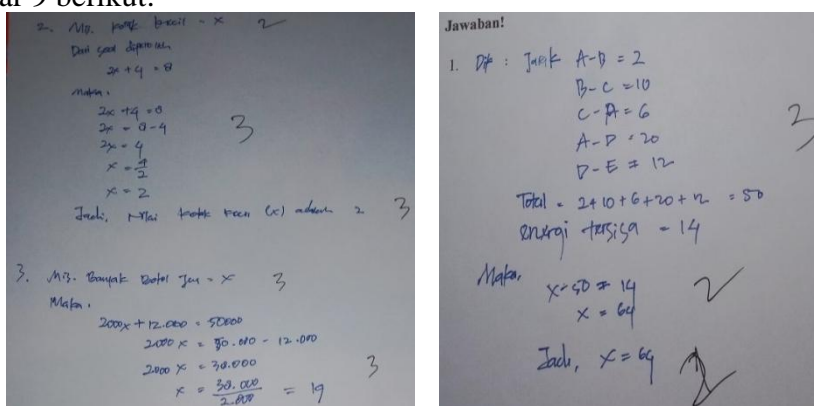 ar 9 berikut.
2. Mis. kotak kecil = x 2
Dari soal diperoleh
2x + 4 = 8
maka:
2x + 4 = 8
2x = 8 - 4
2x = 4
x = 4/2
x = 2
3
Jadi, nilai kotak kecil (x) adalah 2 3
3. Mis. Banyak Botol Jus = x 3
Maka,
2000x + 12.000 = 50000
2000x = 50.000 - 12.000
2000x = 38.000
x = 38.000/2.000 = 19
3
Jawaban!
1. Dik : Jarak A-B = 2
B-C = 10
C-A = 6
A-D = 20
D-E = 12
Total = 2+10+6+20+12 = 50
energi tersisa = 14
Maka,
x-50 = 14
x = 64
2
Jadi, x = 64